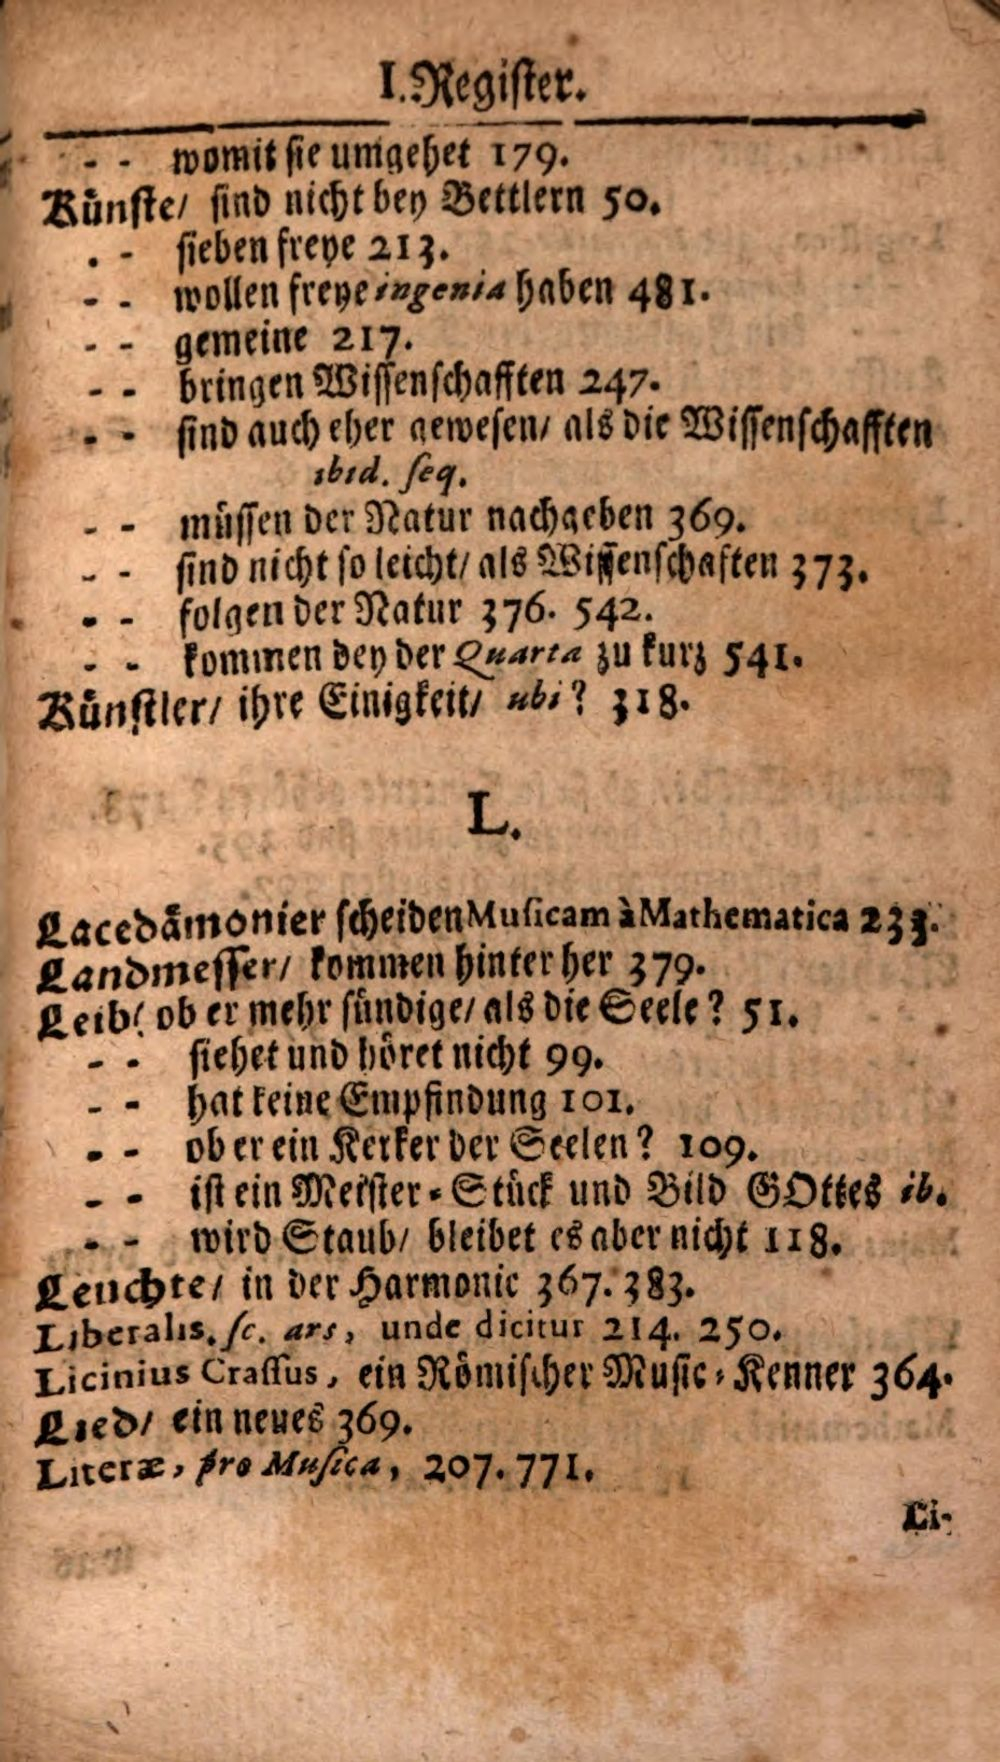 I. Register.
- - womit sie umgehet 179.
Künste/ sind nicht bey Bettlern 50.
- - sieben freye 213.
- - wollen freye ingenia haben 481.
- - gemeine 217.
- - bringen Wissenschafften 247.
- - sind auch eher gewesen/ als die Wissenschafften
ibid. seq.
- - müssen der Natur nachgeben 369.
- - sind nicht so leicht/ als Wissenschaften 373.
- - folgen der Natur 376. 542.
- - kommen bey der Quarta zu kurz 541.
Künstler/ ihre Einigkeit/ ubi? 318.
L.
Lacedämonier scheiden Musicam à Mathematica 233.
Landmesser/ kommen hinter her 379.
Leib/ ob er mehr sündige/ als die Seele? 51.
- - siehet und höret nicht 99.
- - hat keine Empfindung 101.
- - ob er ein Kerker der Seelen? 109.
- - ist ein Meister-Stück und Bild GOttes ib.
- - wird Staub/ bleibet es aber nicht 118.
Leuchte/ in der Harmonic 367. 383.
Liberalis. sc. ars, unde dicitur 214. 250.
Licinius Crassus, ein Römischer Music-Kenner 364.
Lied/ ein neues 369.
Literæ, pro Musica, 207. 771.
Li-